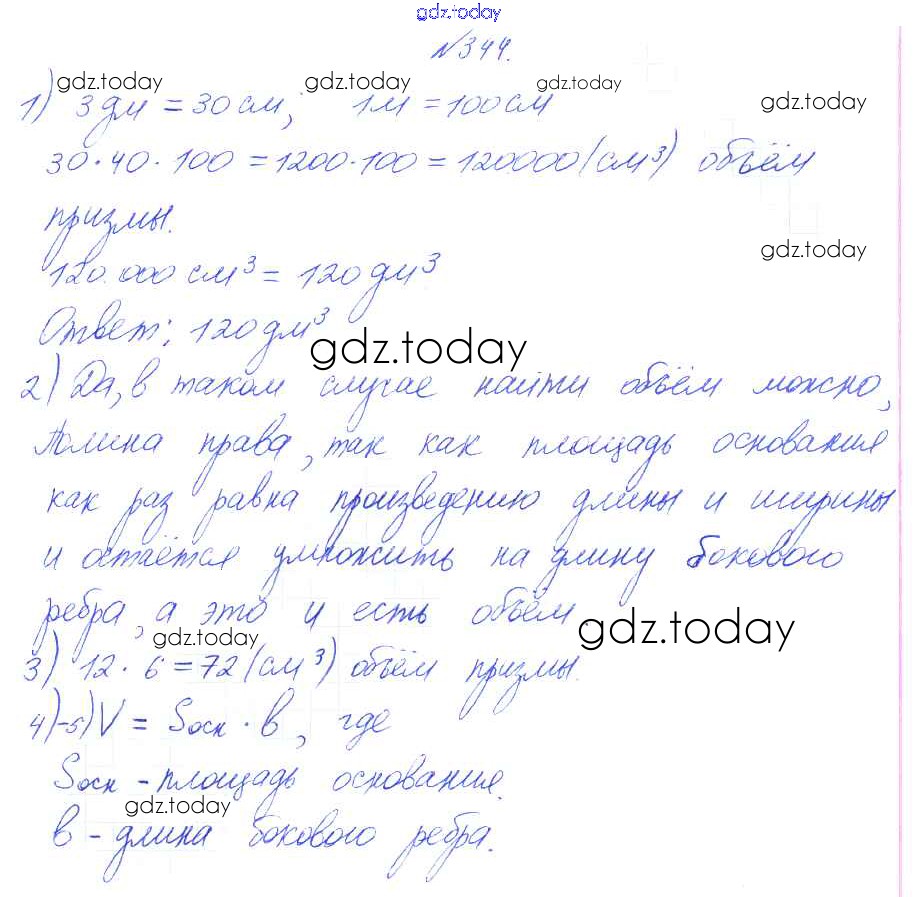 gdz.today
№344.
gdz.today gdz.today gdz.today gdz.today
1) 3 дм = 30 см; 1 м = 100 см
30·40·100 = 1200·100 = 120000 (см³) объём
призмы.
gdz.today
120.000 см³ = 120 дм³
Ответ: 120 дм³
gdz.today
2) Да, в таком случае найти объём можно,
Полина права, так как площадь основания
как раз равна произведению длины и ширины
и остаётся умножить на длину бокового
ребра, а это и есть объём.
gdz.today gdz.today
3) 12·6 = 72 (см³) объём призмы.
4)-5) V = Sосн · b, где
Sосн - площадь основания.
gdz.today
b - длина бокового ребра.